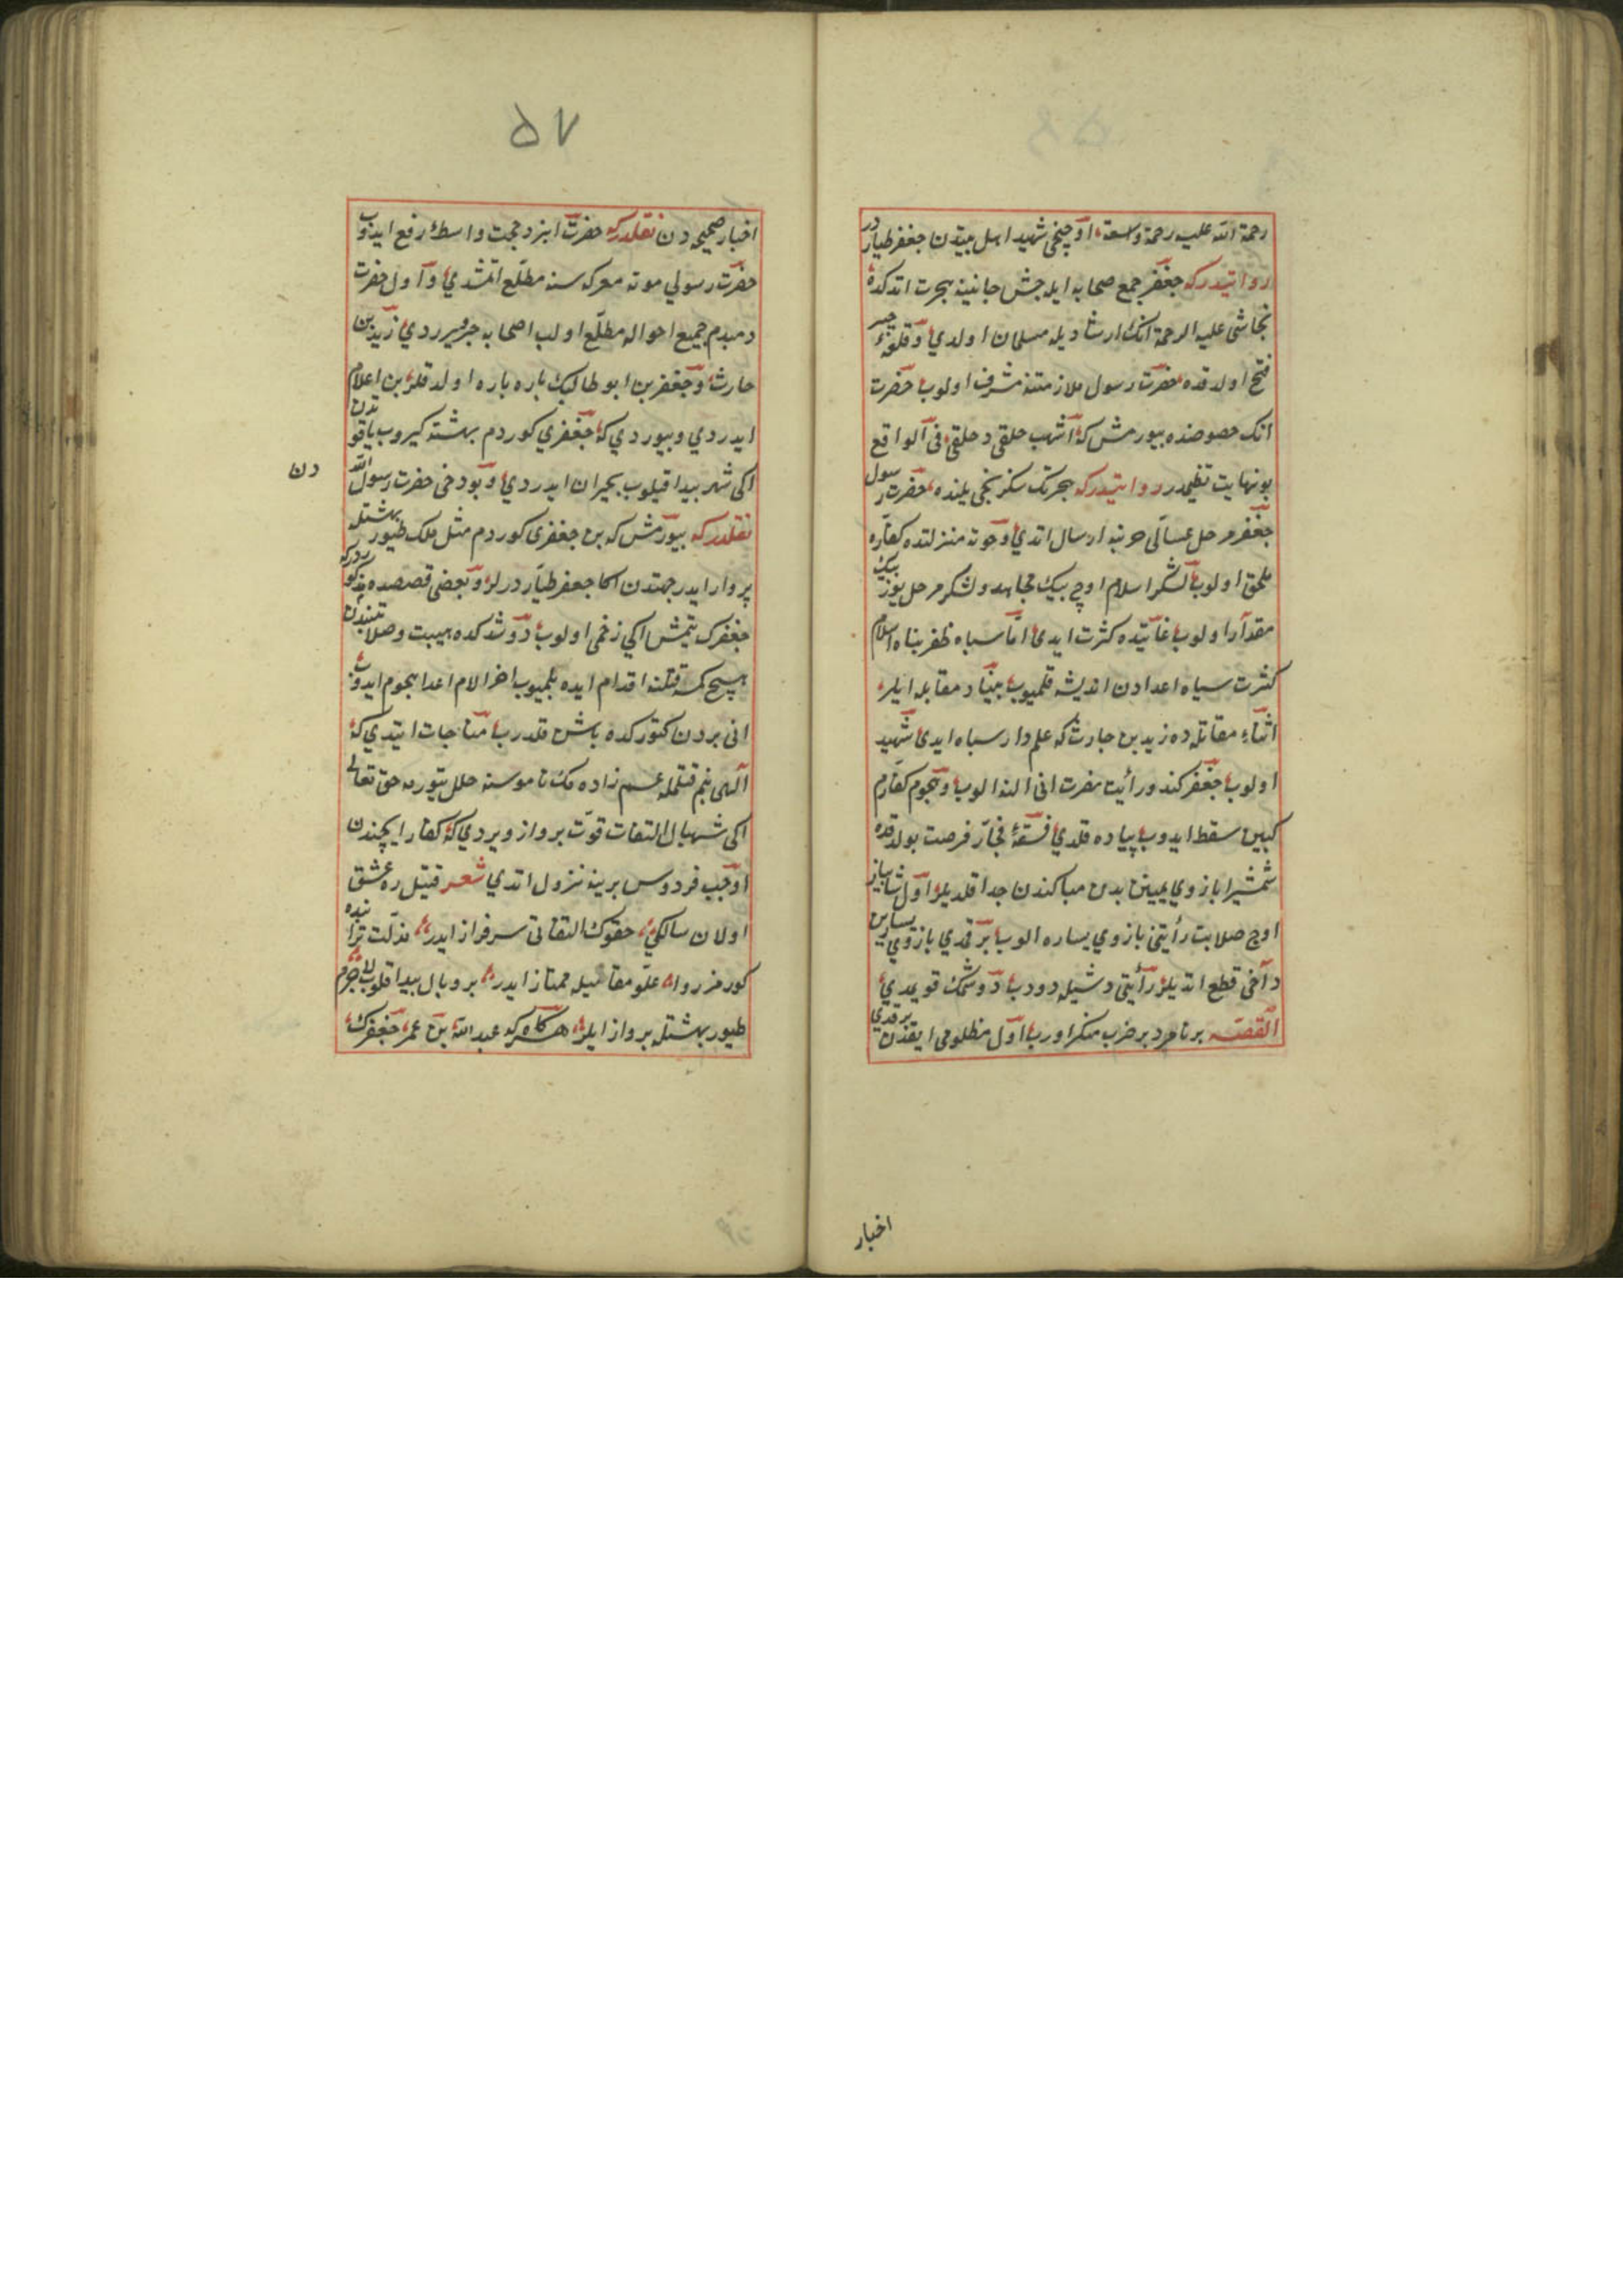 رحمة الله عليه رحمة واسعة اوچنجی شهید اهل بیتدن جعفر طیاردر
روایتدر که جعفر جمع صحابه ایله حبش جانبنه هجرت اتدکده
نجاشی علیه الرحمة انک ارشادیله مسلمان اولدی و قلعهٔ خیبر
فتح اولدقده حضرت رسول ملازمتنه مشرف اولوب حضرت
انک خصوصنده بیورمش که اشبهت خلقی و خلقی فی الواقع
بو نهایت تعظیمدر روایتدر که هجرتک سکزنجی یلنده حضرت رسول
جعفر حربنه ارسال اتدی و موته منزلنده کفاره
ملحق اولوب لشکر اسلام اوچ بیک مجاهد و لشکر یوز بیک
مقدار اولوب غایتده کثرت ایدی اما سپاه ظفر پناه اسلام
کثرت سپاه اعدادن اندیشه قلمیوب بنیاد مقابله ایلر
اثناء مقاتله ده زید بن حارث که علمدار سپاه ایدی شهید
اولوب جعفر کندو رأیت نصرت انی النه الوب و هجوم کفاردم
سقط ایدوب پیاده قلدی فسقهٔ فجار فرصت بولدقده
شمشیرله بازوی یمینن بدن مبارکندن جدا قلدیلر اول شاهباز
اوج صلابت رأیتی بازوی یساره الوب برقدی بازوی یسارین
دخی قطع اتدیلر رأیتی دشیله دوتوب دوشمک قویمدی
القصه بر نامرد بر ضرب منکر اوروب اول مظلومی ایقدن برقدی
اخبار
۵۷
اخبار صحیحه دن نقلدر که حضرت ایزد حجت واسطهٔ رفع ایدوب
حضرت رسولی موته معرکه سنه مطلع اتمشدی و اول حضرت
دمبدم جمیع احواله مطلع اولب اصحابه خبر ویرردی زید بن
حارث و جعفر بن ابو طالبک پاره پاره اولدقلرین اعلام
ایدردی و بیوردی که جعفری کوردم بهشته کیروب یاقوتدن
اکی شهپر پیدا قیلوب طیران ایدردی و بو دخی حضرت رسول الله
دن
نقلدر که بیورمش که بن جعفری کوردم مثل ملک طیور بهشتله
پرواز ایدر جهتدن اکا جعفر طیار درلر و بعضی قصصده مذکوردر که
جعفرک یتمش اکی زخمی اولوب دوشدکده هیبت و صلابتندن
هیچ کمسه قتلنه اقدام ایده بلمیوب اخر الامر اعدا هجوم ایدوب
انی یردن کتورکده باش قلدرب مناجات ایتدی که
الهی بنم قتلمله عم زاده مک ناموسنه خلل یتورمه حق تعالی
اکی شهبال التفات قوت پرواز ویردی که کفار ایچندن
اوچب فردوس برینه نزول اتدی شعر قتیل ره عشق
اولان سالکی حقوک التفاتی سرفراز ایدر مذلت ترابنده
کورمز روا علو مقامیله ممتاز ایدر پر و بال پیدا قلوب لاجرم
طیور بهشتله پرواز ایلر هر کاه که عبد الله بن عمر جعفرک